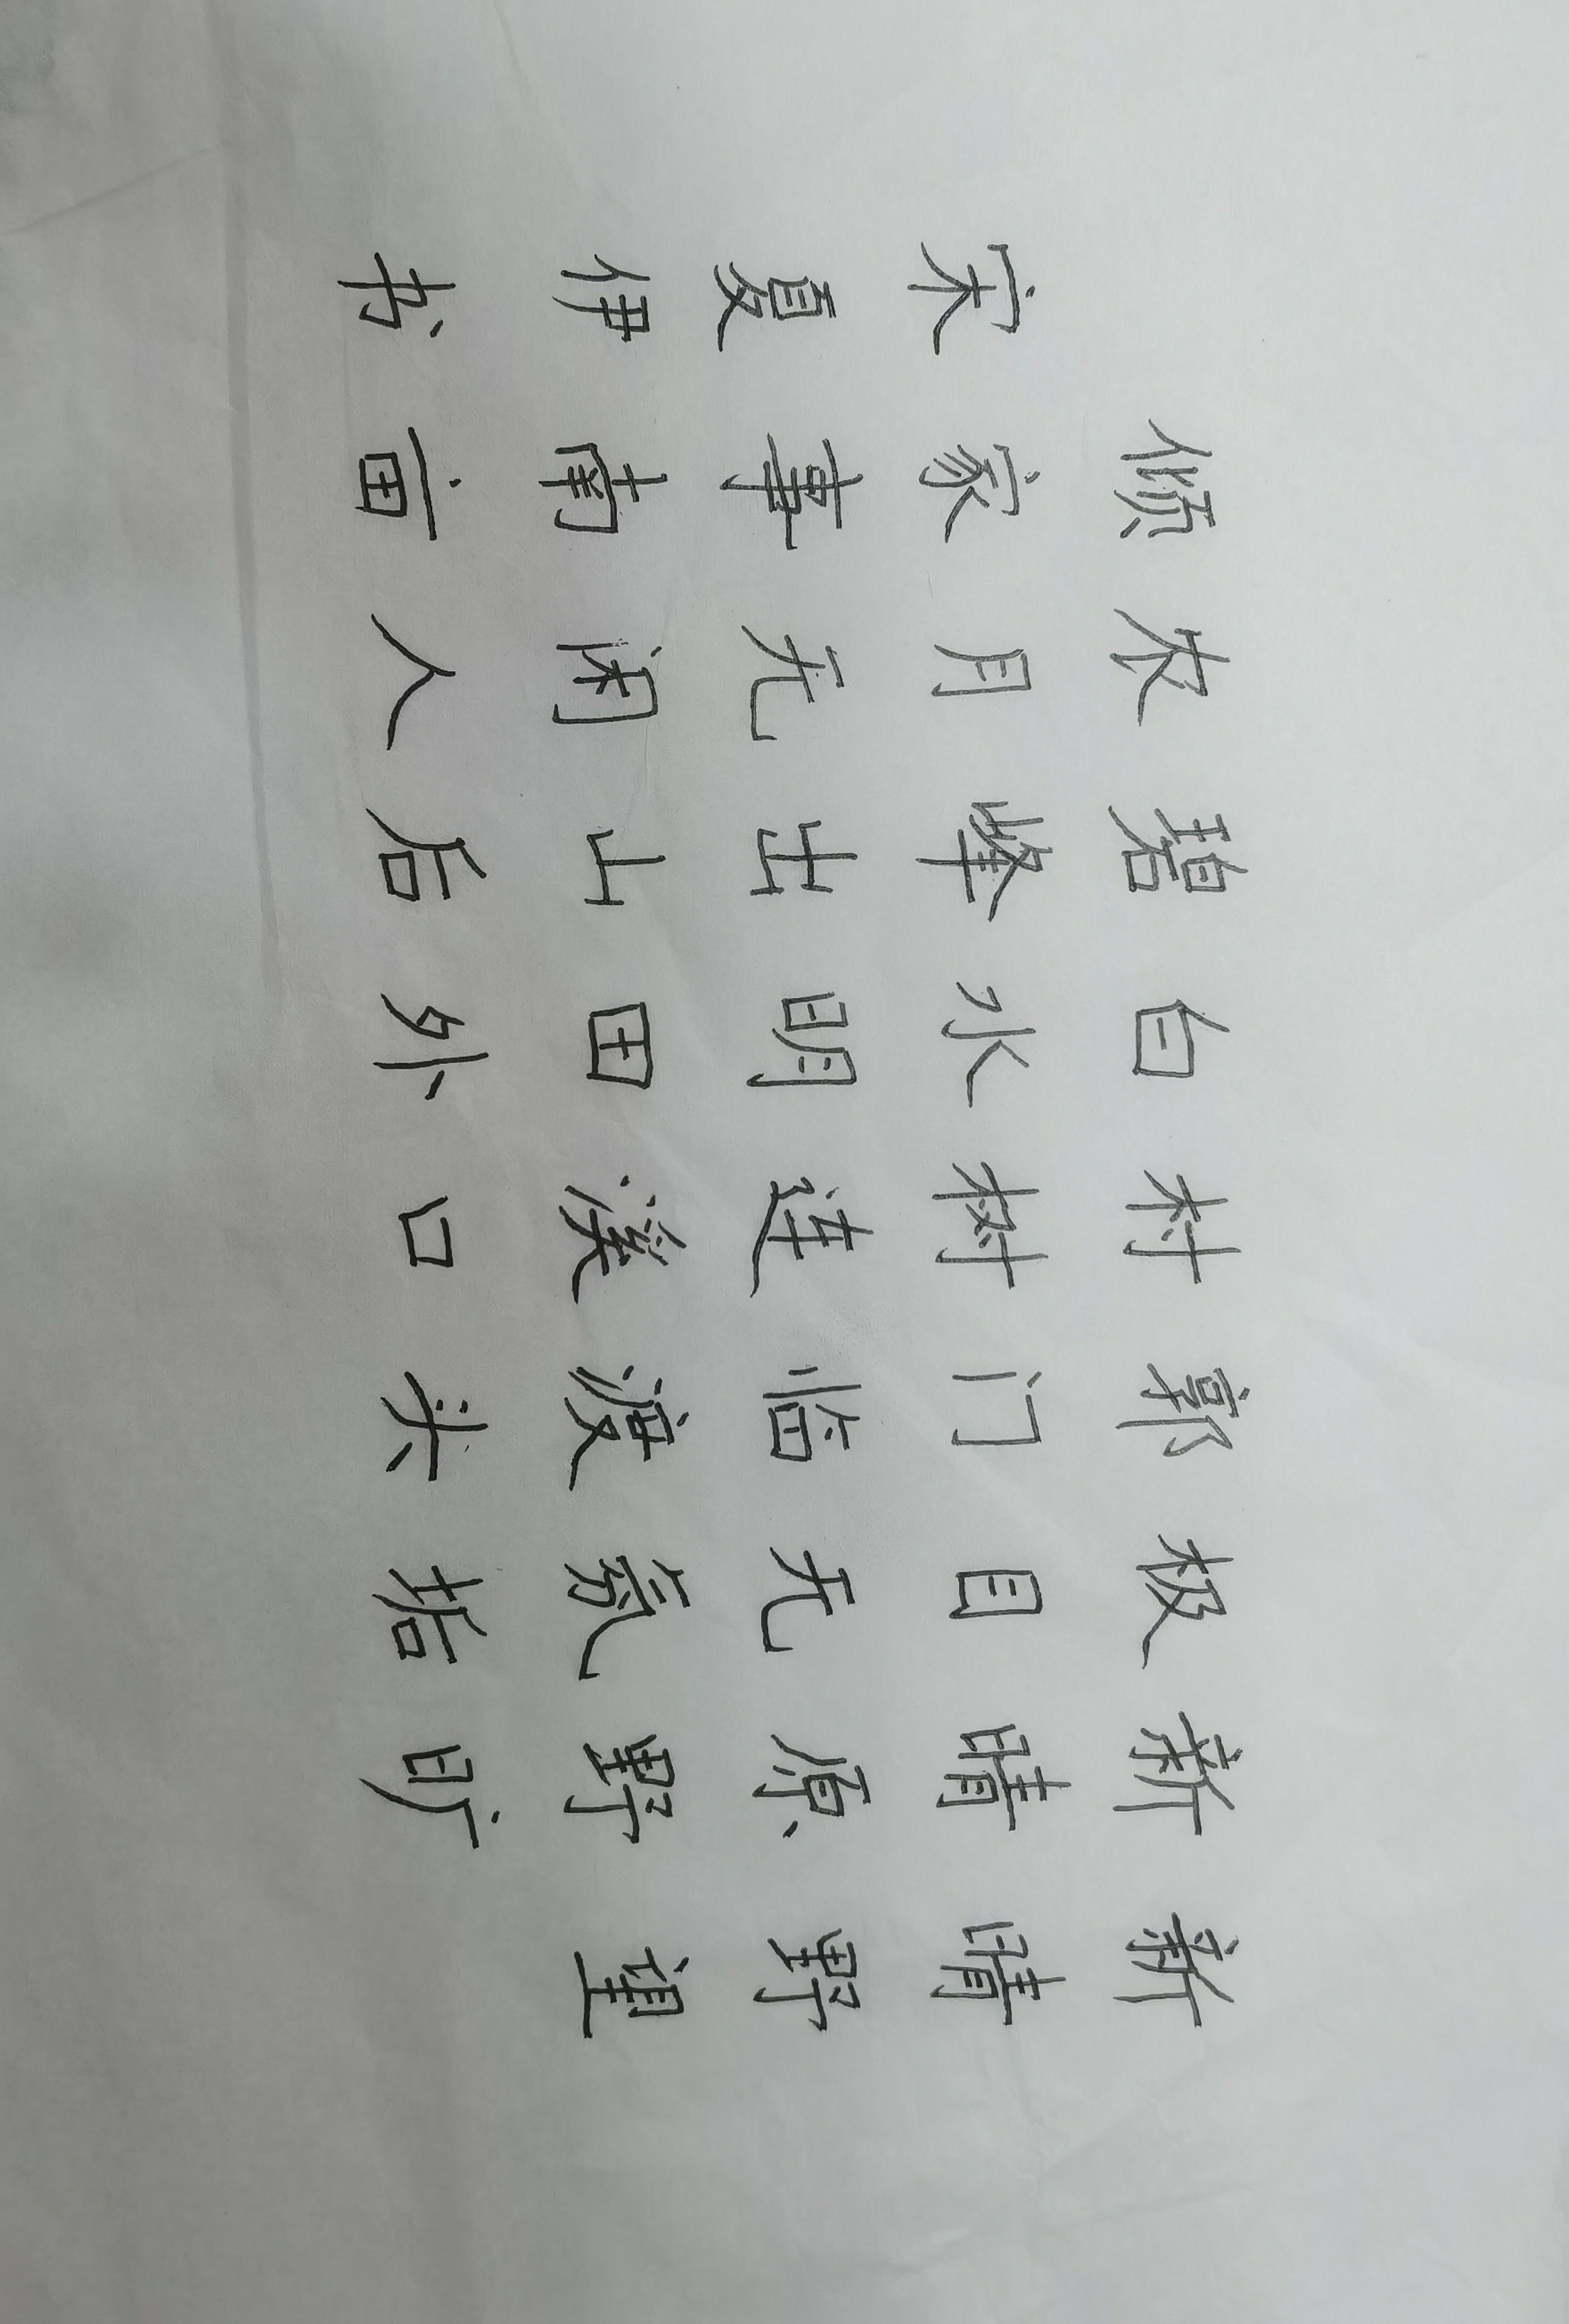 新晴野望
新晴原野旷
极目无氛垢
郭门临渡头
村树连溪口
白水明田外
碧峰出山后
农月无闲人
倾家事南亩
宋夏伊书